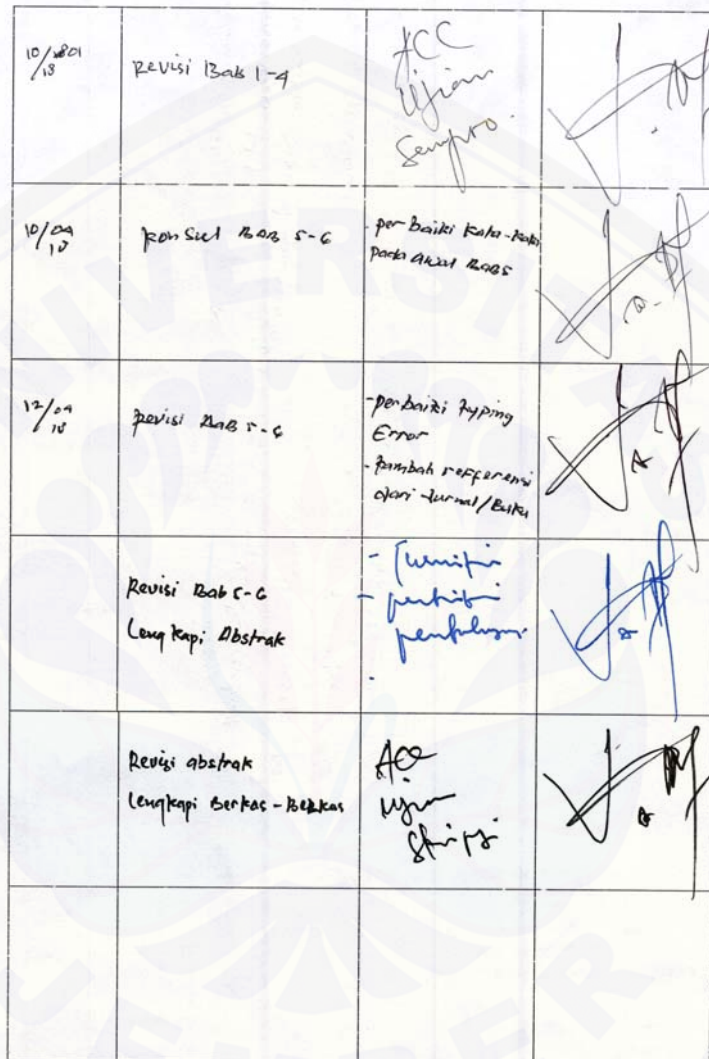 10/
18
Revisi Bab 1-4
ACC
Ujian
Sempro.
10/04
18
Konsul BAB 5-6
- perbaiki kata-kata
pada awal BAB 5
12/04
18
Revisi BAB 5-6
- perbaiki typing
Error
- Tambah refferensi
dari Jurnal/Buku
Revisi Bab 5-6
Lengkapi Abstrak
-
- perbaiki
Revisi abstrak
Lengkapi Berkas-Berkas
ACC
Ujian
Skripsi
UNIVERSITAS
JEMBER